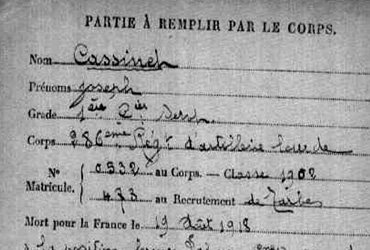 PARTIE À REMPLIR PAR LE CORPS.
Nom Cassinet
Prénoms Joseph
Grade 1ère Cier Serv.
Corps 286eme Régt d'artillerie lourde
No 0.532 au Corps. — Classe 1902
Matricule. 473 au Recrutement de Tarbes
Mort pour la France le 19 Août 1918